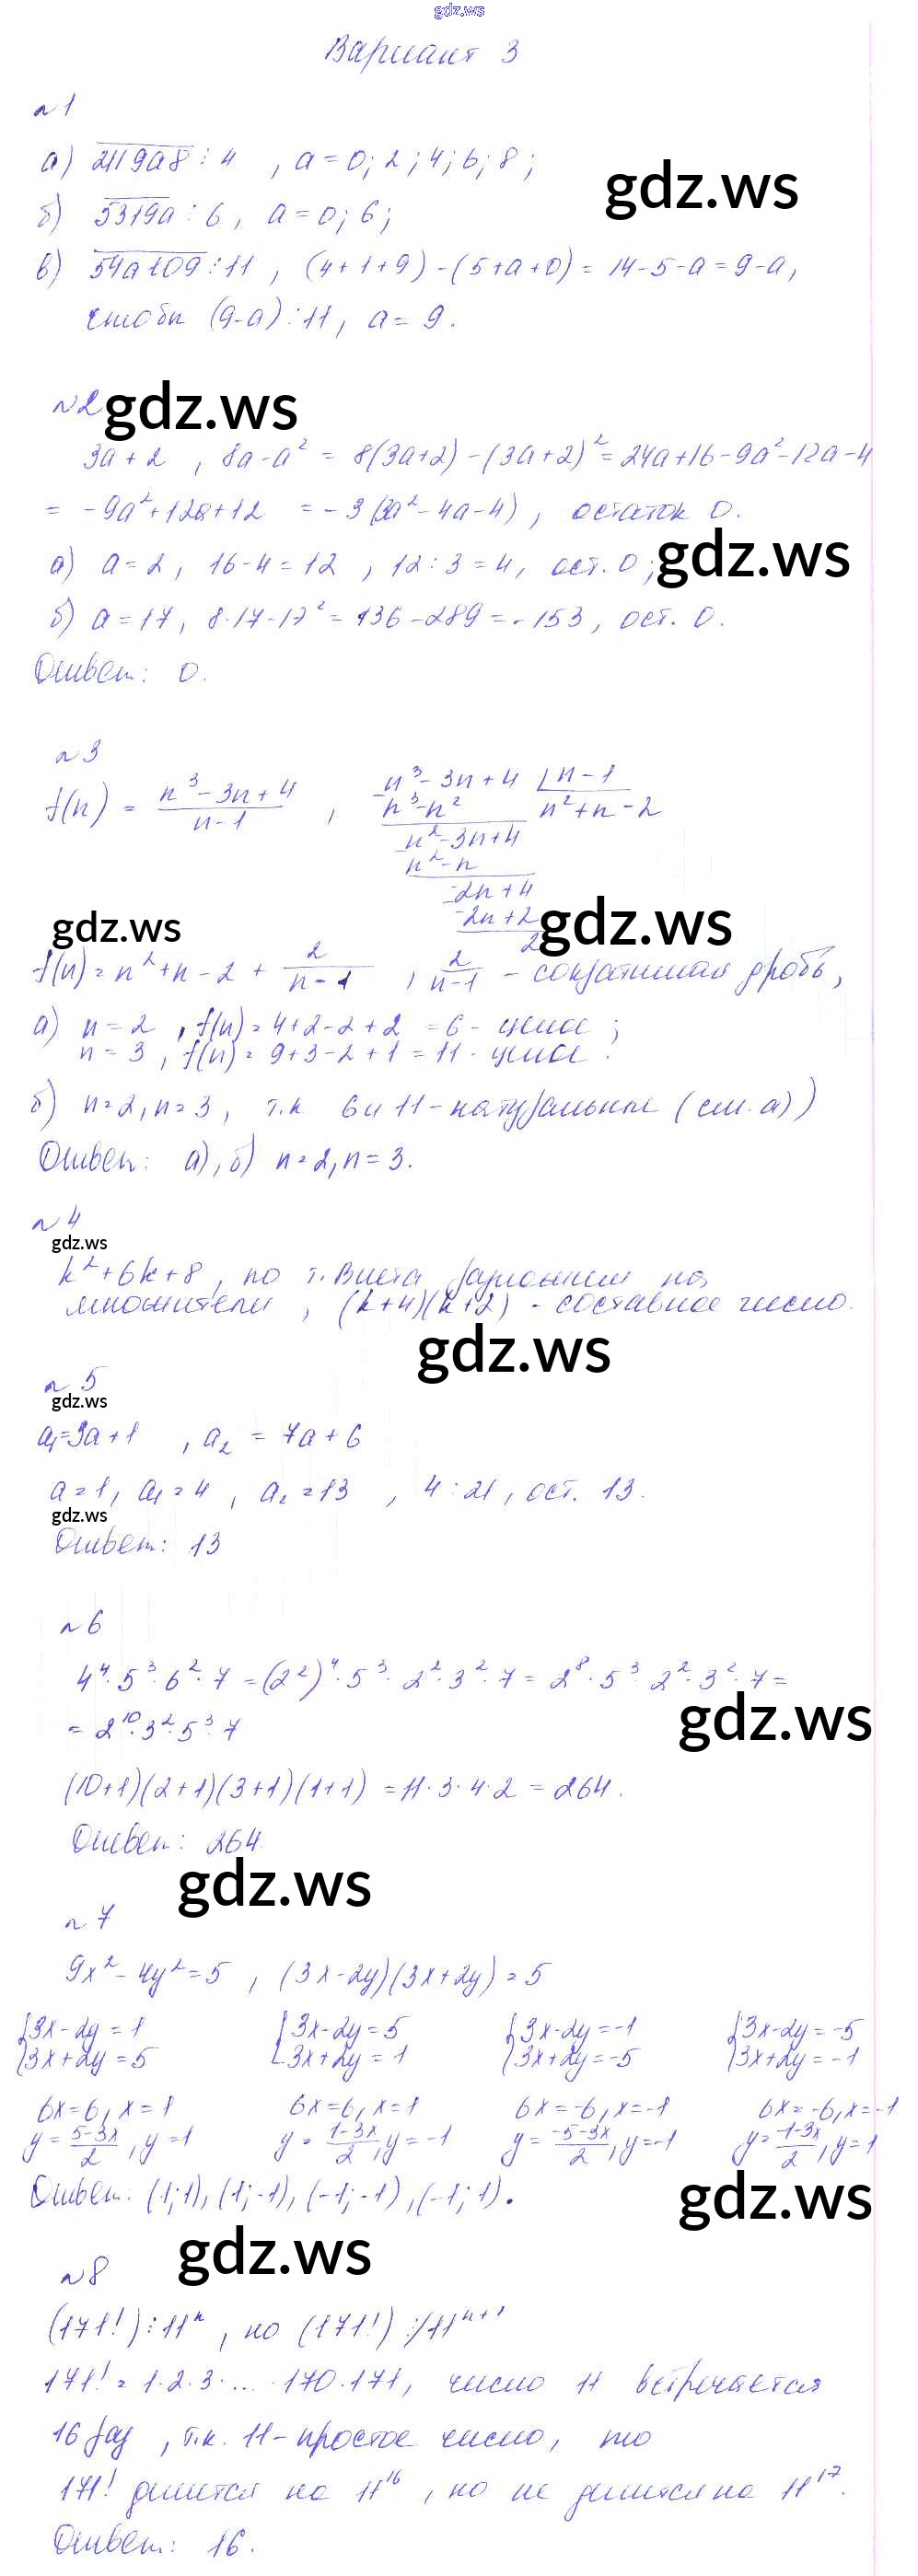 gdz.ws
Вариант 3
№1
а) 2119a8 ⋮ 4 , a = 0; 2; 4; 6; 8;
gdz.ws
б) 5319a ⋮ 6, a = 0; 6;
в) 54a109 ⋮ 11, (4+1+9) - (5+a+0) = 14-5-a = 9-a,
чтобы (9-a) ⋮ 11, a = 9.
№2 gdz.ws
3a + 2 , 8a - a² = 8(3a+2) - (3a+2)² = 24a+16-9a²-12a-4
= -9a²+12a+12 = -3(3a²-4a-4), остаток 0.
а) a = 2, 16-4 = 12 , 12 : 3 = 4, ост. 0; gdz.ws
б) a = 17, 8·17-17² = 136-289 = -153, ост. 0.
Ответ: 0.
№3
f(n) = n³-3n+4 / n-1 , n³-3n+4 | n-1
n³-n² n²+n-2
n²-3n+4
n²-n
-2n+4
gdz.ws -2n+2 gdz.ws
2
f(n) = n²+n-2 + 2/n-1 , 2/n-1 - сократимая дробь,
а) n = 2 , f(n) = 4+2-2+2 = 6 - целое ;
n = 3 , f(n) = 9+3-2+1 = 11 - целое .
б) n=2, n=3, т.к 6 и 11 - натуральные (см. а))
Ответ: а), б) n=2, n=3.
№4
gdz.ws
k²+6k+8, по т. Виета разложим на
множители , (k+4)(k+2) - составное число.
gdz.ws
№5
gdz.ws
a₁=3a+1 , a₂ = 7a+6
a=1, a₁=4 , a₂=13 , 4 : 21, ост. 13.
gdz.ws
Ответ: 13
№6
4⁴·5³·6²·7 = (2²)⁴·5³·2²·3²·7 = 2⁸·5³·2²·3²·7 =
gdz.ws
= 2¹⁰·3²·5³·7
(10+1)(2+1)(3+1)(1+1) = 11·3·4·2 = 264.
Ответ: 264.
gdz.ws
№7
9x²-4y²=5 , (3x-2y)(3x+2y)=5
{3x-2y=1 {3x-2y=5 {3x-2y=-1 {3x-2y=-5
{3x+2y=5 {3x+2y=1 {3x+2y=-5 {3x+2y=-1
6x=6, x=1 6x=6, x=1 6x=-6, x=-1 6x=-6, x=-1
y=5-3x/2, y=1 y=1-3x/2, y=-1 y=-5-3x/2, y=-1 y=-1-3x/2, y=1
Ответ: (1;1), (1;-1), (-1;-1), (-1;1). gdz.ws
gdz.ws
№8
(171!) ⋮ 11ⁿ , но (171!) ⋮̸ 11ⁿ⁺¹
171! = 1·2·3·...·170·171, число 11 встречается
16 раз , т.к. 11 - простое число, то
171! делится на 11¹⁶ , но не делится на 11¹⁷.
Ответ: 16.